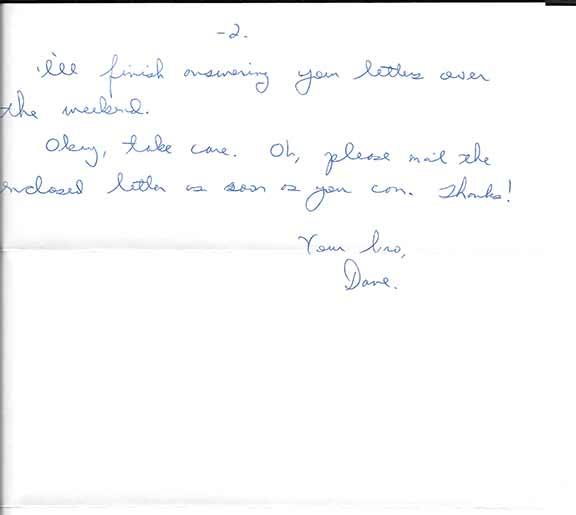 -2.
I'll finish answering your letters over
the weekend.
Okay, take care. Oh, please mail the
enclosed letter as soon as you can. Thanks!
Your bro,
Dave.